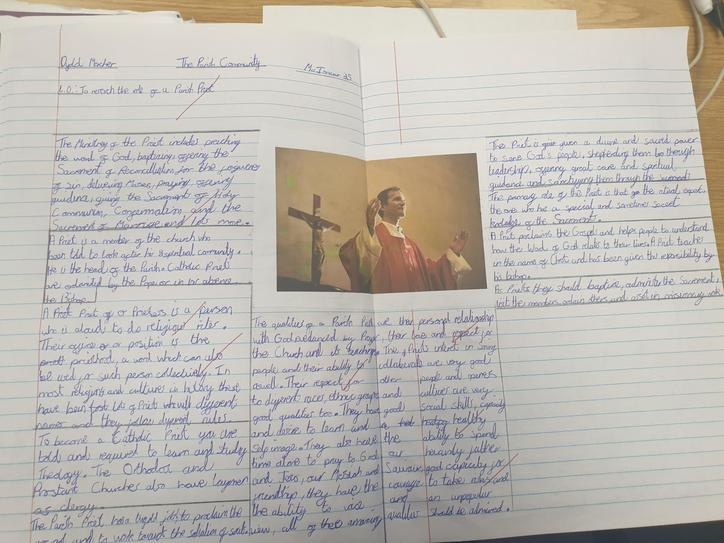 The Parish Community
L.O: To research the role of a Parish Priest
The Ministry of the Priest includes preaching
the word of God, baptising, offering the
Sacrament of Reconciliation for the forgiveness
of sin, delivering Masses, praying, offering
guidance, giving the Sacraments of Holy
Communion, Confirmation, and the
Sacrament of Marriage and lots more.
A Priest is a member of the church who
been told to look after the spiritual community.
He is the head of the Parish. Catholic Priests
are ordained by the Pope or in
the Bishop.
A Priest is a person
who is to do religious rites.
Their office or position is the
priesthood, a word which can also
be used for such person collectively. In
most religions and cultures in history there
have been Priest with different
names and they follow different rules
To become a Catholic Priest you are
told and required to learn and study
Theology. The Orthodox and
Churches also have laymen
as clergy.
The Parish Priest has a job to proclaim the
and to work towards the salvation of
The qualities of a Parish Priest are their personal relationship
with God by Prayer, their love and respect for
the Church and its teachings. The Priest's interest in
people and their ability to collaborate are very good
as well. Their respect for other people and
to different races, ethnic groups and cultures are very
good qualities too. They have good social skills, capacity
and desire to learn and a healthy
self image. They also have the ability to spend
time alone to pray to God our heavenly father
and Jesus, our Messiah and Saviour, good capacity for
friendship, they have the courage to take risks and
the ability to and an unpopular
view, all of their amazing qualities should be admired.
The Priest is given a divine and sacred power
to save God's people, shepherding them through
leadership, offering great care and spiritual
guidance and sanctifying them through the
The primary role of this Priest is that of the ritual expert,
the one who has a special and sometimes secret
knowledge of the Sacraments.
A Priest proclaims the Gospel and helps people to understand
how the Word of God relates to their lives. A Priest teaches
in the name of Christ and has been given this responsibility by
his bishop.
As Priests they should baptise, administer the Sacraments,
visit the members, ordain others and assist in missionary work.